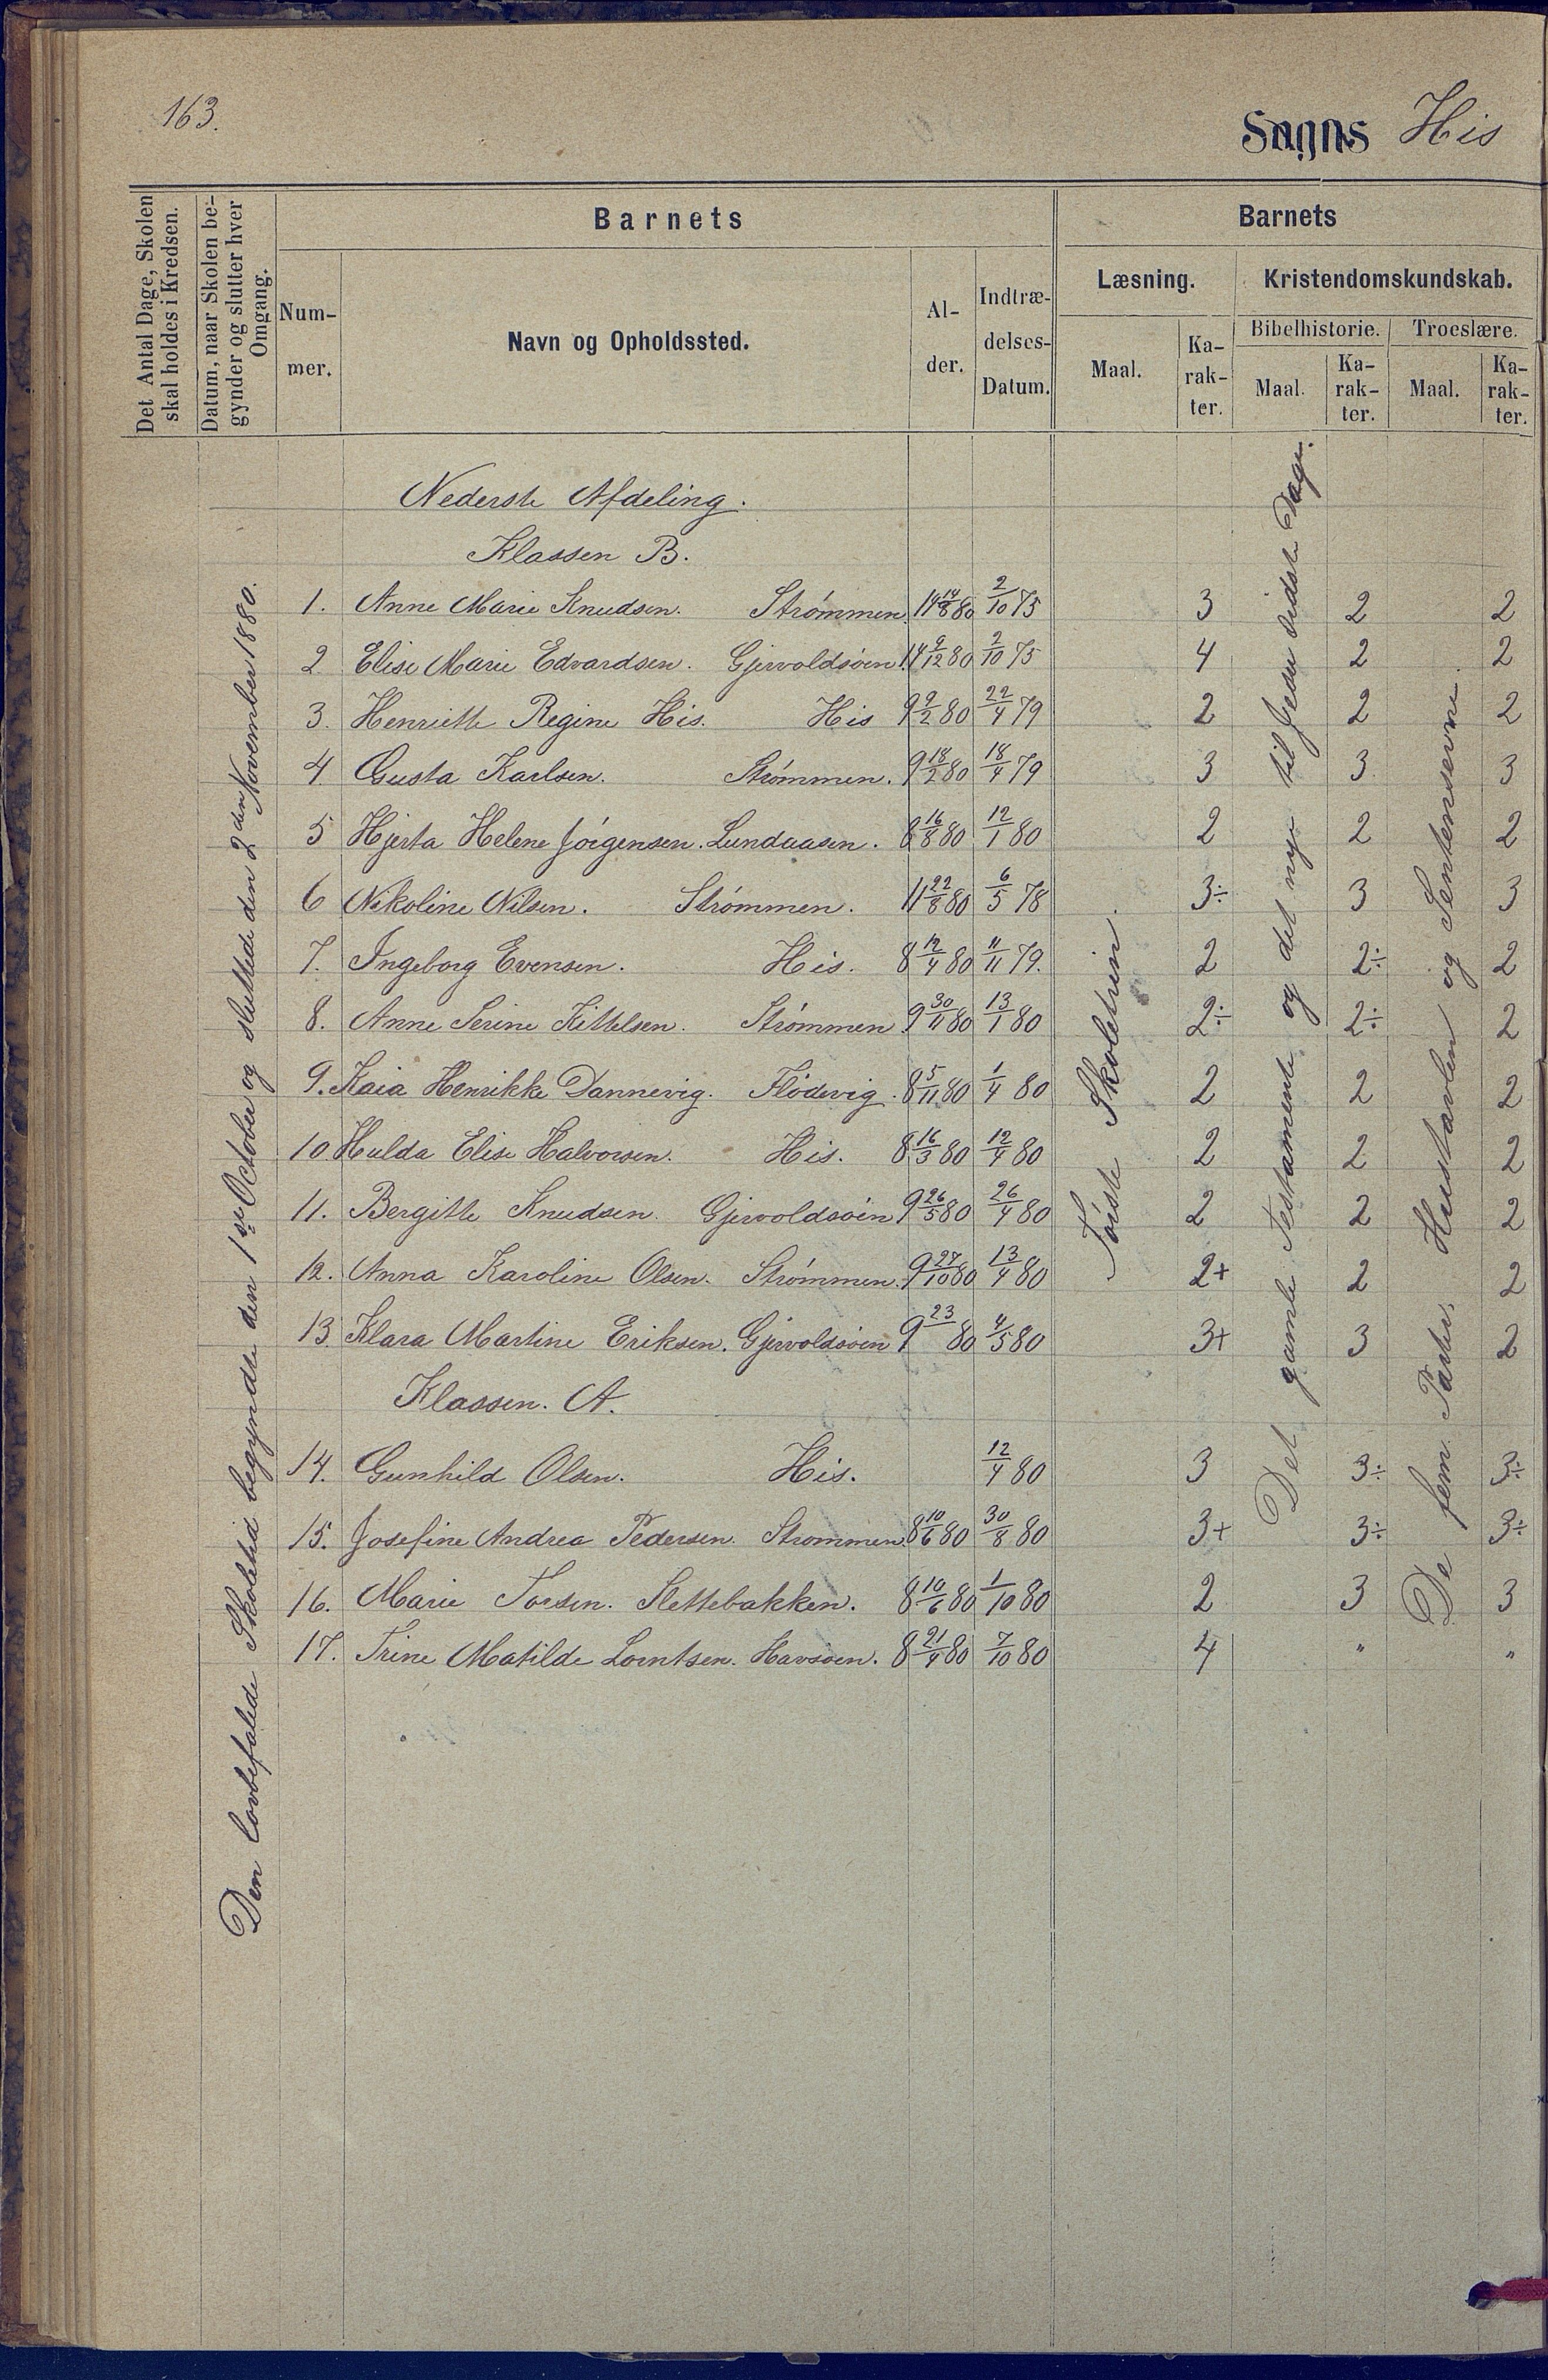 163.
Sogns His
Det Antal Dage, Skolen skal holdes i Kredsen.
Datum, naar Skolen begynder og slutter hver Omgang.
Barnets
Num-mer.
Navn og Opholdssted.
Al-der.
Indtræ-delses-Datum.
Barnets
Læsning.
Kristendomskundskab.
Bibelhistorie.
Troeslære.
Maal.
Ka-rak-ter.
Maal.
Ka-rak-ter.
Maal.
Ka-rak-ter.
Den lovbefalede Skoletid begyndte den 1ste October og sluttede den 2den November 1880.
Nederste Afdeling.
Klassen B.
1. Anne Marie Knudsen. Strømmen. 14 14/8 80 2/10 75 3 2 2
2 Elise Marie Edvardsen. Gjervoldsøen 14 9/12 80 2/10 75 4 2 2
3. Henriette Regine His. His 9 9/2 80 22/4 79 2 2 2
4 Gusta Karlsen. Strømmen. 9 18/2 80 18/4 79 3 3 3
5 Hjerta Helene Jörgensen. Lundaasen. 8 16/8 80 12/1 80 2 2 2
6 Nikoline Nilsen. Strømmen. 11 22/8 80 6/5 78 3÷ 3 3
7. Ingeborg Evensen. His. 8 12/4 80 11/11 79. 2 2÷ 2
8. Anne Serine Kittelsen. Strømmen 9 30/11 80 13/1 80 2÷ 2÷ 2
9. Kaia Henrikke Dannevig. Flödevig. 8 5/11 80 1/4 80 2 2 2
10. Hulda Elise Halvorsen. His. 8 16/3 80 12/4 80 2 2 2
11. Bergitte Knudsen. Gjervoldsøen 9 26/5 80 26/4 80 2 2 2
12. Anna Karoline Olsen. Strømmen. 9 27/10 80 13/4 80 2+ 2 2
13. Klara Martine Eriksen. Gjervoldsøen 9 23/ 80 4/5 80 3+ 3 2
Klassen. A.
14. Gunhild Olsen. His. 12/4 80 3 3÷ 3÷
15. Josefine Andrea Pedersen. Strommen. 8 10/6 80 30/8 80 3+ 3÷ 3÷
16. Marie Torsen. Slettebakken. 8 10/6 80 1/10 80 2 3 3
17. Trine Matilde Lorntsen. Havsøen. 8 21/4 80 7/10 80 4 " "
Første Skoletrin.
Det gamle Testamente og det nye til Jesu sidste Dage.
De fem Parter, Hustavlen og Sentenserne.